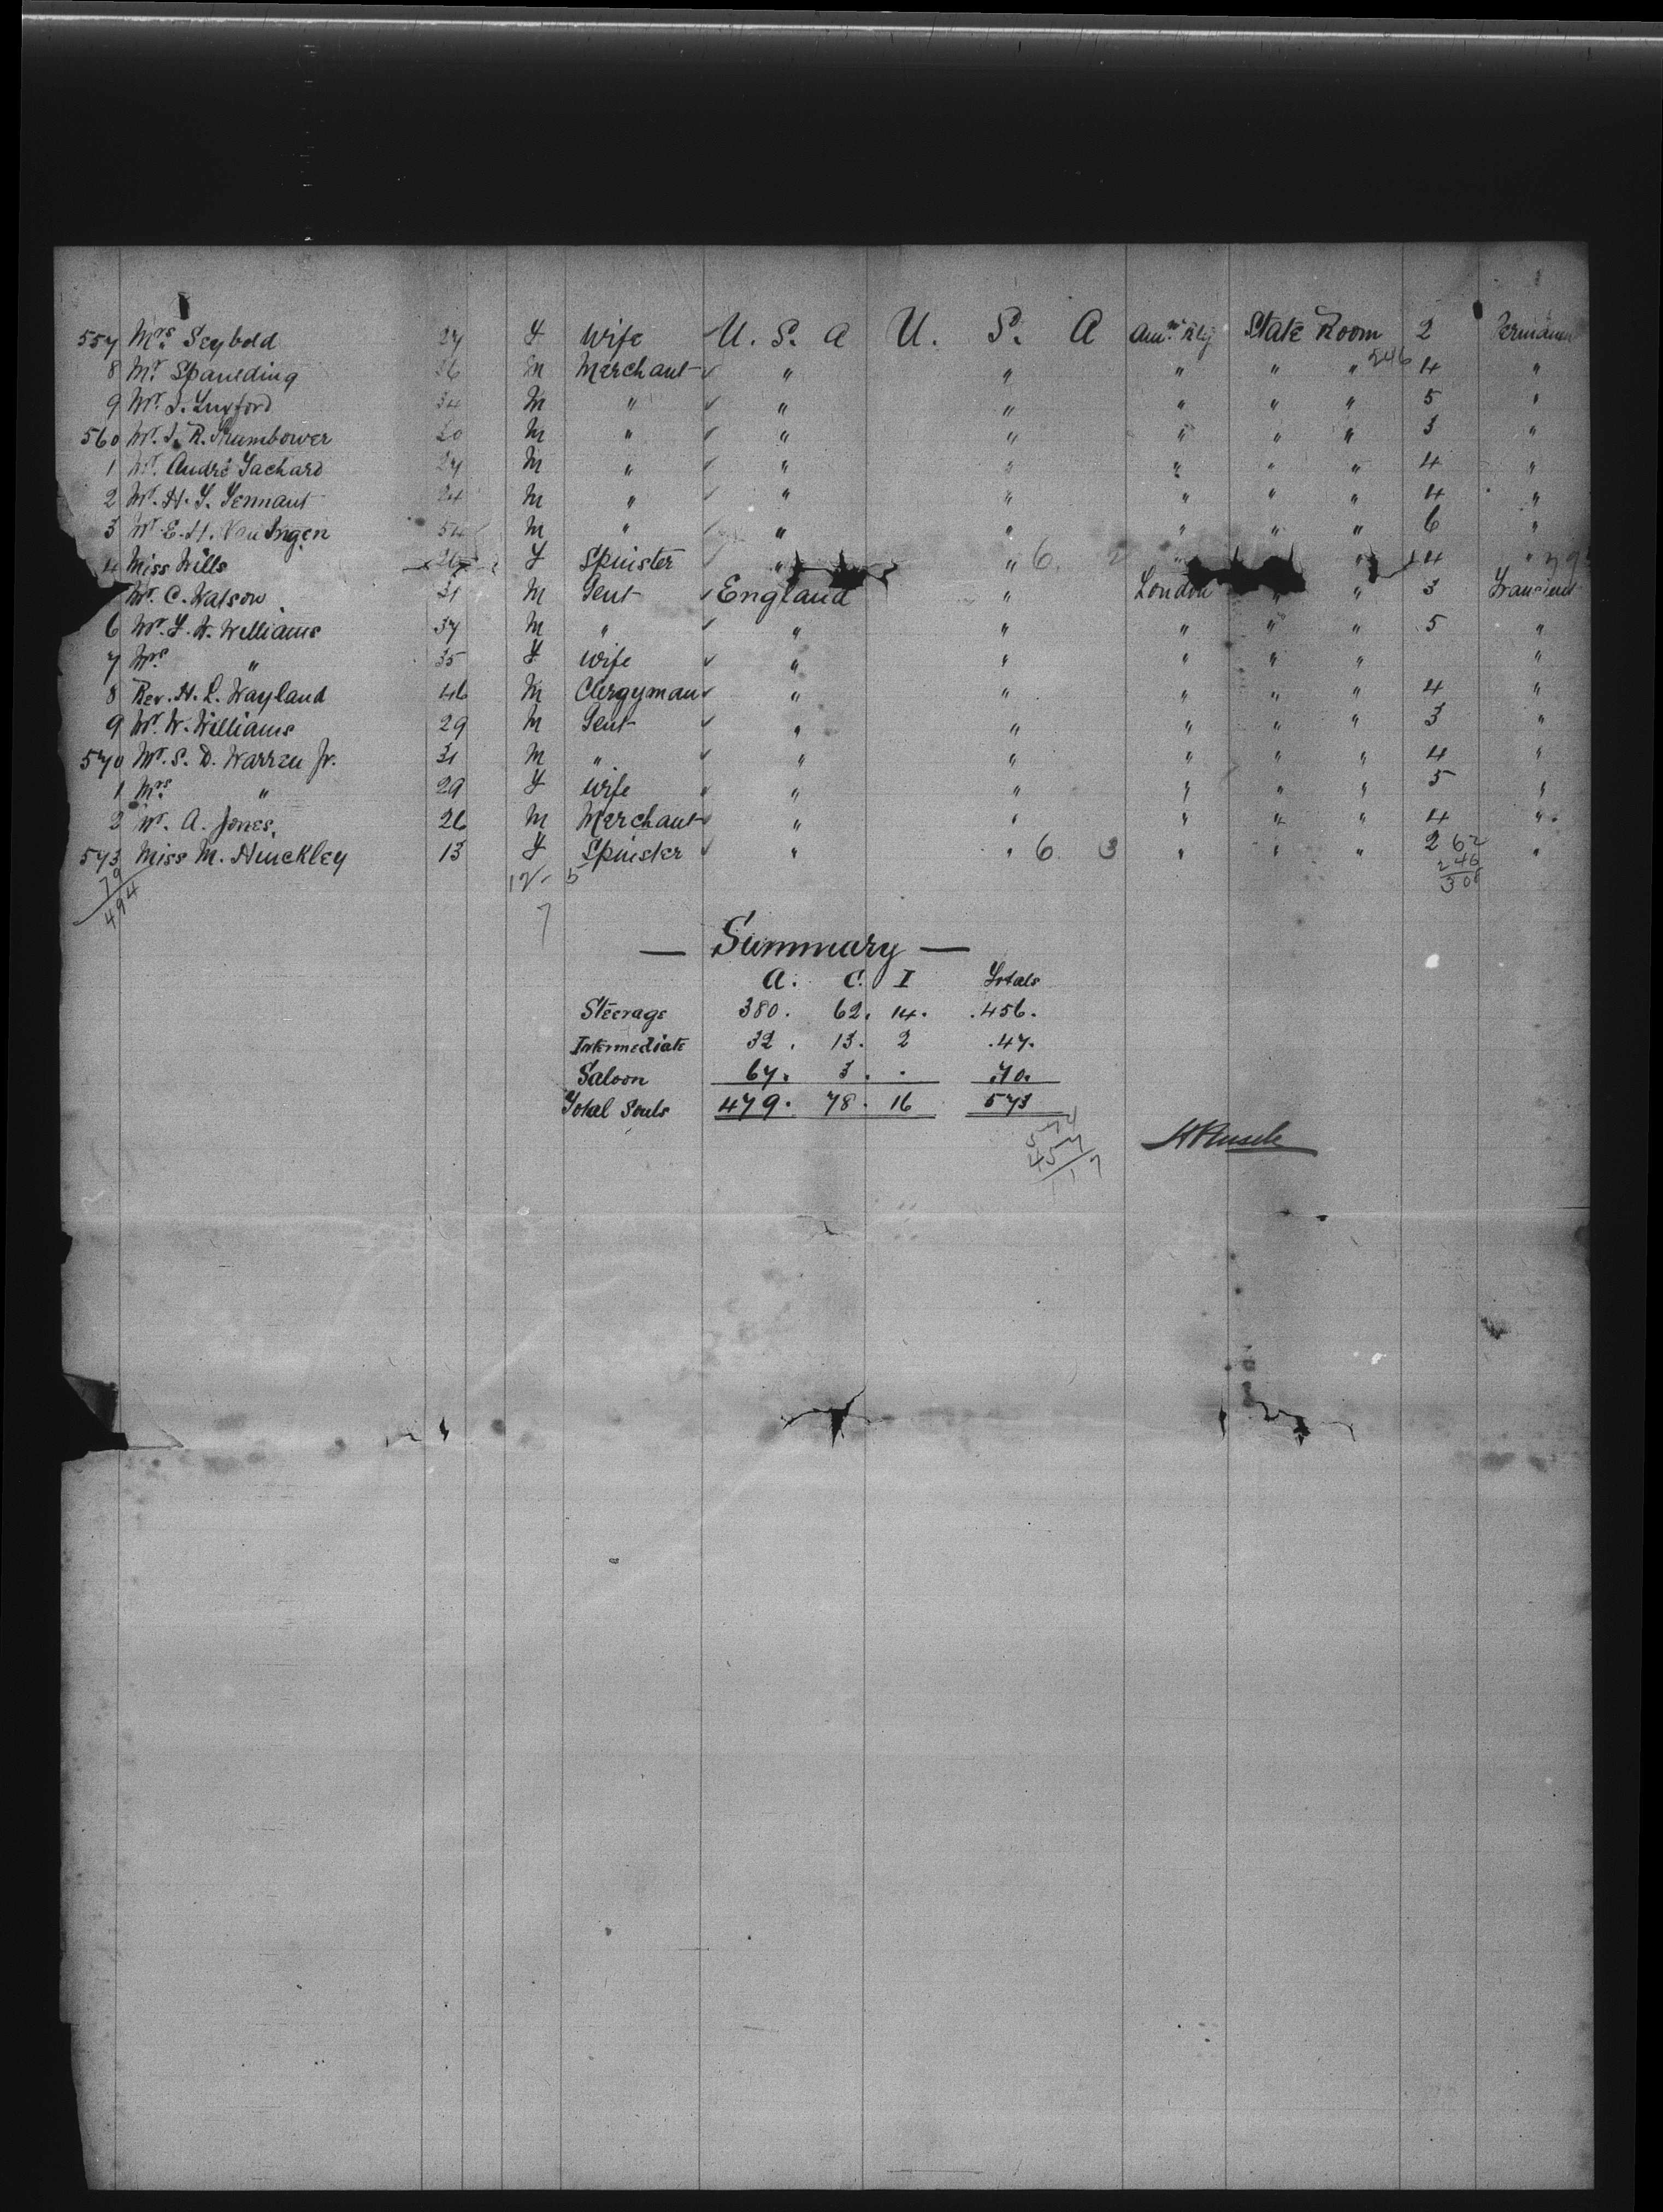 557 Mrs. Seybold 27 F Wife U. S. A U. S. A State Room 2
8 Mr. Spaulding 36 M Merchant " " " " " 246 4 "
9 Mr. 34 M " " " " " " 5 "
560 Mr. J. R. M " " " " " " 3 "
1 Mr. André Tachard 27 M " " " " " " 4 "
2 Mr. H. T. Tennant 24 M " " " " " " 4 "
3 Mr. E. H. Van Ingen 54 M " " " " " " 6 "
4 Miss Wills 26 F Spinster " " 6. 2 " " 4 "
Mr. C. Watson 31 M Gent England " London " " 3 Transient
6 Mr. T. W. Williams 37 M " " " " " " 5 "
7 Mrs " 35 F Wife " " " " " "
8 Rev. H. L. Wayland 46 M Clergyman " " " " " 4 "
9 Mr. W. Williams 29 M Gent " " " " " 3 "
570 Mr. S. D. Warren Jr. 31 M " " " " " " 4 "
1 Mrs. " 29 F Wife " " " " " 5 "
2 Mr. A. Jones. 26 M Merchant " " " " " 4 "
573 Miss M. Hinckley 13 F Spinster " " 6 3 " " " 2 62 "
79 12 5 246
494 7 308
— Summary —
A. C. I Totals
Steerage 380. 62. 14. .456.
Intermediate 32. 13. 2 .47.
Saloon 67. 3. . .70.
Total Souls 479. 78. 16 573
574
457
117